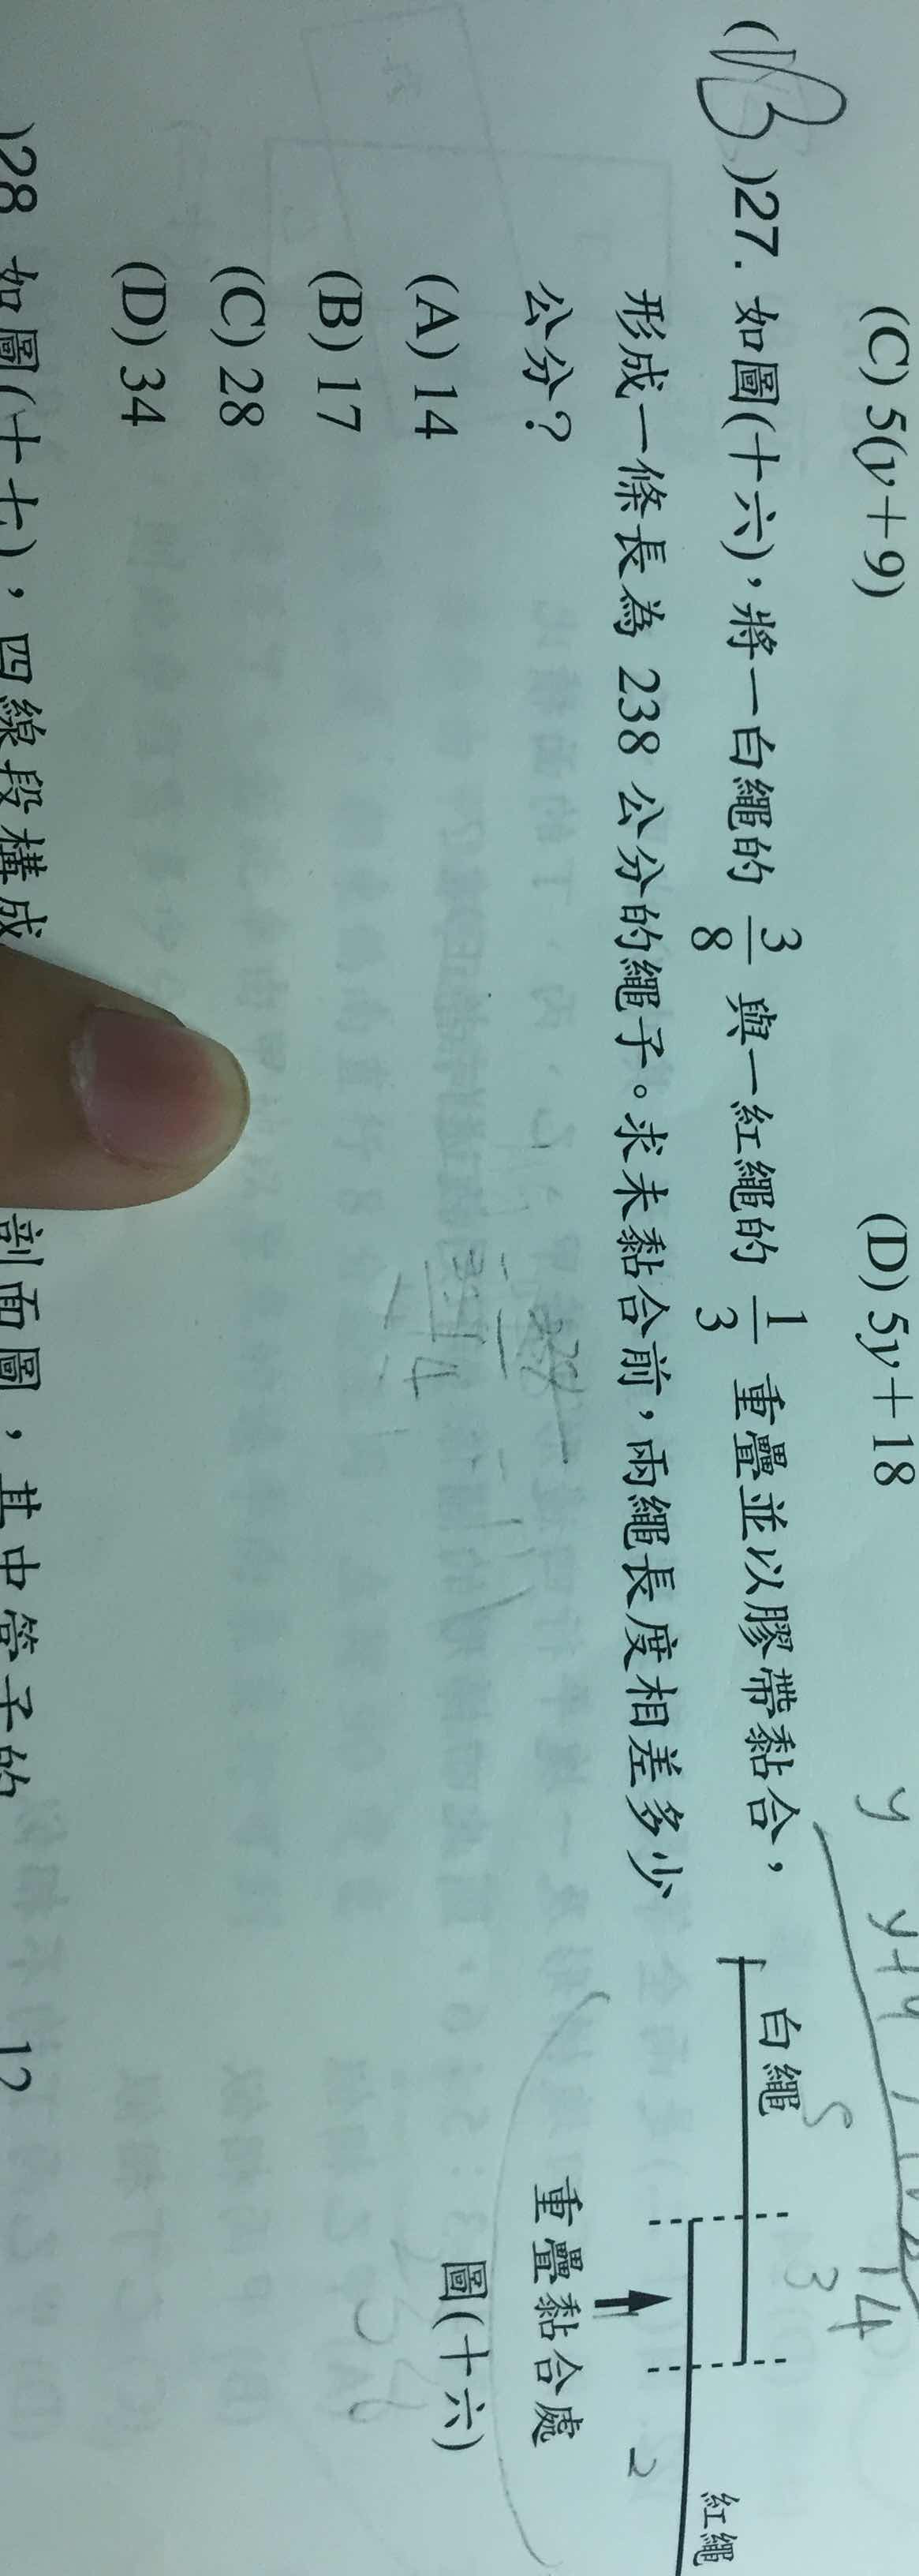 (C) 5(y+9)
(D) 5y+18
(B)27. 如圖(十六)，將一白繩的 3/8 與一紅繩的 1/3 重疊並以膠帶黏合，
形成一條長為 238 公分的繩子。求未黏合前，兩繩長度相差多少
公分？
(A) 14
(B) 17
(C) 28
(D) 34
白繩
紅繩
重疊黏合處
圖(十六)
y
y+9
14
5
3
2
14
)28. 如圖(十七)，四線段構成
剖面圖，其中管子的
12